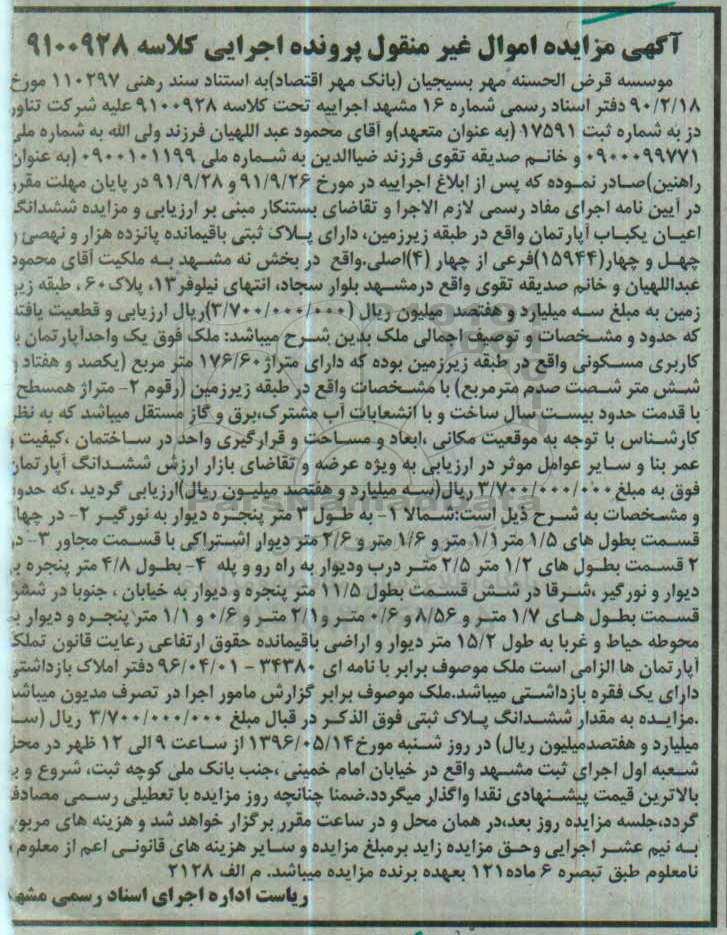 آگهی مزایده اموال غیر منقول پرونده اجرایی کلاسه ۹۱۰۰۹۲۸
موسسه قرض الحسنه مهر بسیجیان (بانک مهر اقتصاد)به استناد سند رهنی ۱۱۰۲۹۷ مورخ
۹۰/۲/۱۸ دفتر اسناد رسمی شماره ۱۶ مشهد اجراییه تحت کلاسه ۹۱۰۰۹۲۸ علیه شرکت تناور
دز به شماره ثبت ۱۷۵۹۱ (به عنوان متعهد)و آقای محمود عبد اللهیان فرزند ولی الله به شماره ملی
۰۹۰۰۰۹۹۷۷۱ و خانم صدیقه تقوی فرزند ضیاالدین به شماره ملی ۰۹۰۰۱۰۱۱۹۹ (به عنوان
راهنین)صادر نموده که پس از ابلاغ اجراییه در مورخ ۹۱/۹/۲۶ و ۹۱/۹/۲۸ در پایان مهلت مقرر
در آیین نامه اجرای مفاد رسمی لازم الاجرا و تقاضای بستنکار مبنی بر ارزیابی و مزایده ششدانگ
اعیان یکباب آپارتمان واقع در طبقه زیرزمین، دارای پلاک ثبتی باقیمانده پانزده هزار و نهصد و
چهل و چهار(۱۵۹۴۴)فرعی از چهار (۴)اصلی.واقع در بخش نه مشهد به ملکیت آقای محمود
عبداللهیان و خانم صدیقه تقوی واقع درمشهد بلوار سجاد، انتهای نیلوفر۱۳، پلاک۶۰ ، طبقه زیر
زمین به مبلغ سه میلیارد و هفتصد میلیون ریال (۳/۷۰۰/۰۰۰/۰۰۰)ریال ارزیابی و قطعیت یافته
که حدود و مشخصات و توصیف اجمالی ملک بدین شرح میباشد: ملک فوق یک واحدآپارتمان با
کاربری مسکونی واقع در طبقه زیرزمین بوده که دارای متراژ ۱۷۶/۶۰ متر مربع (یکصد و هفتاد و
شش متر شصت صدم مترمربع) با مشخصات واقع در طبقه زیرزمین (رقوم ۲- متراژ همسطح
با قدمت حدود بیست سال ساخت و با انشعابات آب مشترک،برق و گاز مستقل میباشد که به نظر
کارشناس با توجه به موقعیت مکانی ،ابعاد و مساحت و قرارگیری واحد در ساختمان ،کیفیت و
عمر بنا و سایر عوامل موثر در ارزیابی به ویژه عرضه و تقاضای بازار ارزش ششدانگ آپارتمان
فوق به مبلغ ۳/۷۰۰/۰۰۰/۰۰۰ ریال(سه میلیارد و هفتصد میلیون ریال)ارزیابی گردید ،که حدود
و مشخصات به شرح ذیل است:شمالا ۱- به طول ۳ متر پنجره دیوار به نورگیر ۲- در چهار
قسمت بطول های ۱/۵ متر ۱/۱ متر و ۱/۶ متر و ۲/۶ متر دیوار اشتراکی با قسمت مجاور ۳- در
۲ قسمت بطول های ۱/۲ متر ۲/۵ متر درب ودیوار به راه رو و پله ۴- بطول ۴/۸ متر پنجره بر
دیوار و نورگیر ،شرقا در شش قسمت بطول ۱۱/۵ متر پنجره و دیوار به خیابان ، جنوبا در شش
قسمت بطول های ۱/۷ متر و ۸/۵۶ و ۰/۶ متر و ۲/۱ متر و ۰/۶ و ۱/۱ متر پنجره و دیوار به
محوطه حیاط و غربا به طول ۱۵/۲ متر دیوار و اراضی باقیمانده حقوق ارتفاعی رعایت قانون تملک
آپارتمان ها الزامی است ملک موصوف برابر با نامه ای ۳۴۳۸۰ - ۹۶/۰۴/۰۱ دفتر املاک بازداشتی
دارای یک فقره بازداشتی میباشد.ملک موصوف برابر گزارش مامور اجرا در تصرف مدیون میباشد
.مزایده به مقدار ششدانگ پلاک ثبتی فوق الذکر در قبال مبلغ ۳/۷۰۰/۰۰۰/۰۰۰ ریال (سه
میلیارد و هفتصدمیلیون ریال) در روز شنبه مورخ۱۳۹۶/۰۵/۱۴ از ساعت ۹ الی ۱۲ ظهر در محل
شعبه اول اجرای ثبت مشهد واقع در خیابان امام خمینی ،جنب بانک ملی کوچه ثبت، شروع و به
بالاترین قیمت پیشنهادی نقدا واگذار میگردد.ضمنا چنانچه روز مزایده با تعطیلی رسمی مصادف
گردد،جلسه مزایده روز بعد،در همان محل و در ساعت مقرر برگزار خواهد شد و هزینه های مربوط
به نیم عشر اجرایی وحق مزایده زاید برمبلغ مزایده و سایر هزینه های قانونی اعم از معلوم و
نامعلوم طبق تبصره ۶ ماده۱۲۱ بعهده برنده مزایده میباشد. م الف ۲۱۲۸
ریاست اداره اجرای اسناد رسمی مشهد